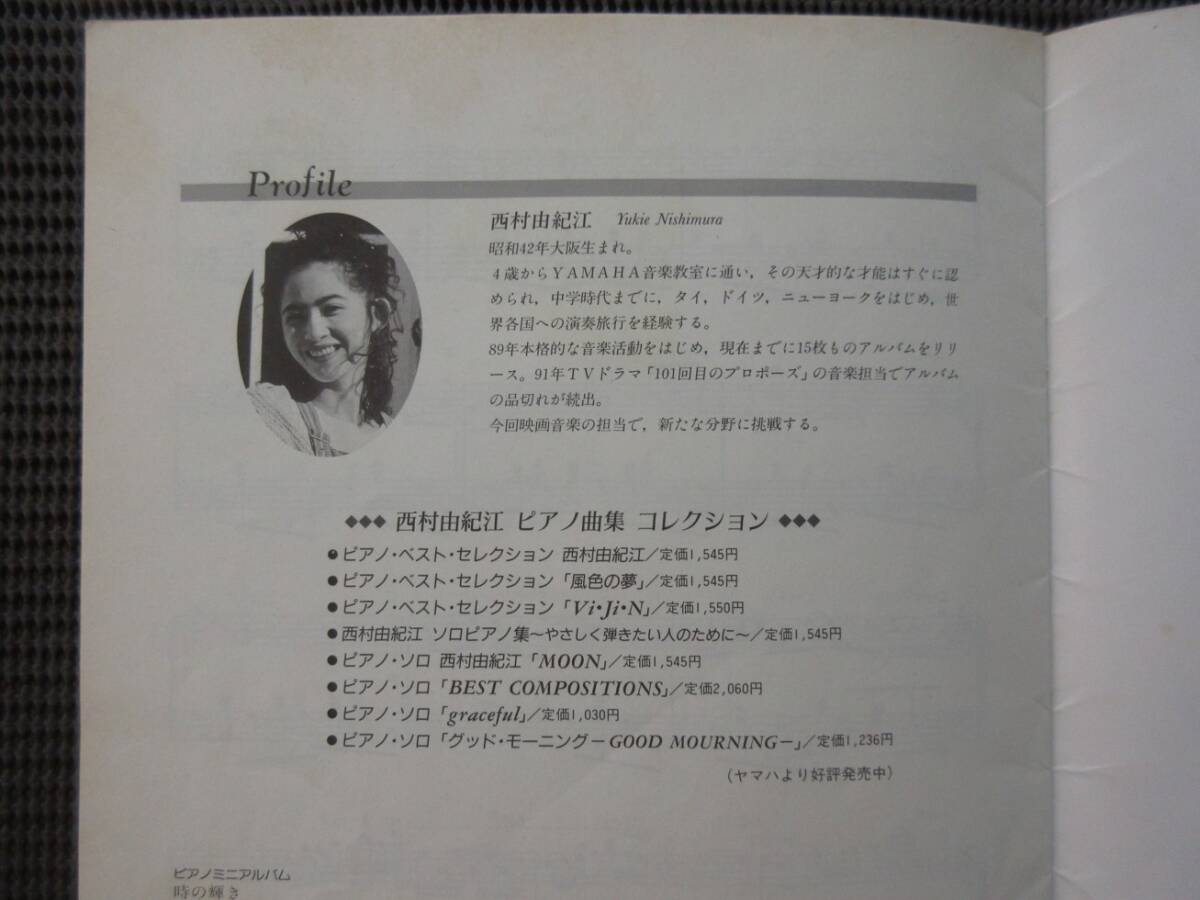 Profile
西村由紀江 Yukie Nishimura
昭和42年大阪生まれ。
4歳からYAMAHA音楽教室に通い，その天才的な才能はすぐに認
められ，中学時代までに，タイ，ドイツ，ニューヨークをはじめ，世
界各国への演奏旅行を経験する。
89年本格的な音楽活動をはじめ，現在までに15枚ものアルバムをリリ
ース。91年TVドラマ「101回目のプロポーズ」の音楽担当でアルバム
の品切れが続出。
今回映画音楽の担当で，新たな分野に挑戦する。
◆◆◆ 西村由紀江 ピアノ曲集 コレクション ◆◆◆
●ピアノ・ベスト・セレクション 西村由紀江／定価1,545円
●ピアノ・ベスト・セレクション「風色の夢」／定価1,545円
●ピアノ・ベスト・セレクション「Vi・Ji・N」／定価1,550円
●西村由紀江 ソロピアノ集～やさしく弾きたい人のために～／定価1,545円
●ピアノ・ソロ 西村由紀江「MOON」／定価1,545円
●ピアノ・ソロ「BEST COMPOSITIONS」／定価2,060円
●ピアノ・ソロ「graceful」／定価1,030円
●ピアノ・ソロ「グッド・モーニング－GOOD MOURNING－」／定価1,236円
（ヤマハより好評発売中）
ピアノミニアルバム
時の輝き